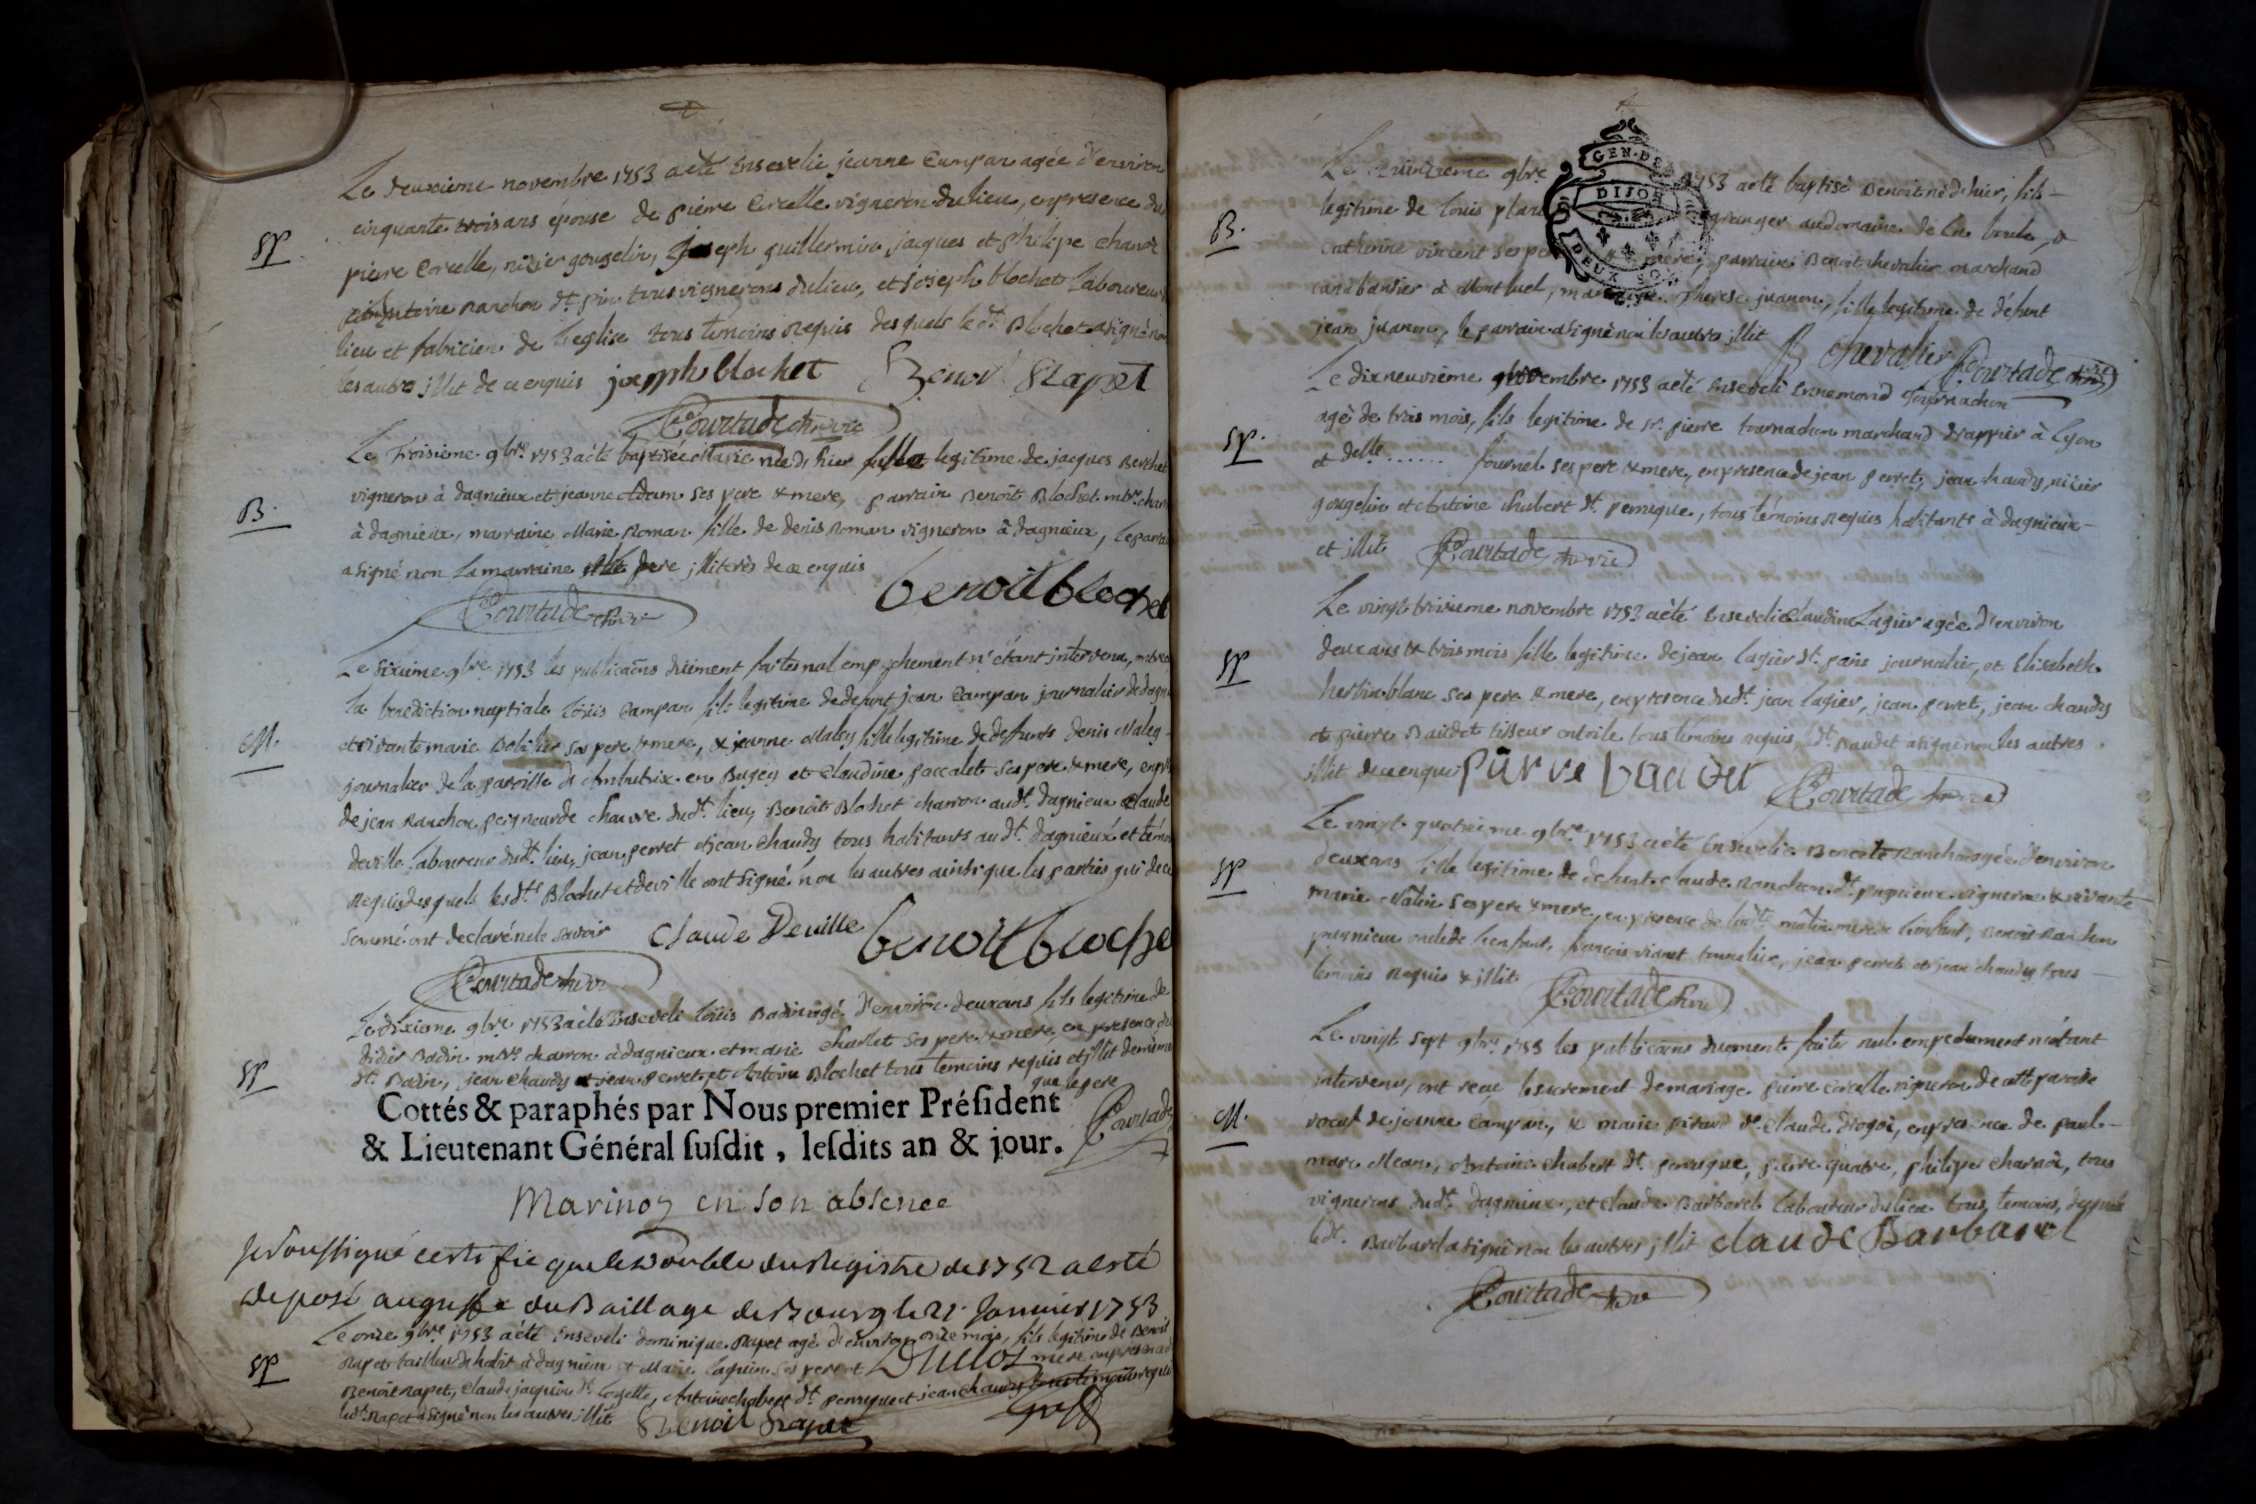 Le deuxieme novembre 1753 a eté Ensevelie jeanne Campan agée d'environ
cinquante trois ans épouse de pierre Corcelle vigneron du lieu, en presence du
SP
pierre Corcelle, nizier gougelin, joseph guillermin jacques et philipe
Ranchon dt. tous vignerons du lieu, et joseph blochet Laboureur
lieu et fabricien de l'eglise tous temoins Requis desquels le dt. Blochet a signé non
les autres illit de ce enquis joseph blochet Benoit Rapet
Courtade
Le Troisieme 9bre. 1753 a eté baptisée Marie née d'hier fille legitime de jacques
vigneron à dagnieux et jeanne Adam ses pere & mere, parrain Benoit Blochet mtre.
B.
à dagnieux, marraine Marie Roman fille de denis Roman vigneron à dagnieux, le
a signé non la marraine pere illiterés de ce enquis
benoit blochet
Courtade
Le sixieme 9bre 1753 les publicaons düement faites nul empechement n'étant intervenu,
la benediction nuptiale loüis Campan fils legitime de defunt jean Campan journalier
M.
et vivante marie ses pere & mere, & jeanne Maley fille legitime de defunts denis Maley
journalier de la paroisse d'Ambutrix en Bugey et Claudine paccalet ses pere & mere,
de jean Ranchon peigneur de chanvre dudt. lieu, Benoit Blochet charron audt. dagnieux Claude
deville laboureur dudt. lieu, jean perret et jean Chaudy tous habitants audt. dagnieux et
Requis desquels lesdts Blochet et deville ont signé non les autres ainsi que les parties qui de ce
sommé ont declaré ne le savoir
Claude Deville benoit bloche
Courtade
Le dixieme 9bre 1753 a eté Enseveli loüis Badin agé d'environ deux ans fils legitime de
didier Badin mtre charron à dagnieux et marie Charlet ses pere & mere, en presence du
SP
dt. Badin, jean Chaudy et jean perret, et Antoine Blochet tous temoins requis et illit de même
que le pere
Courtade
Cottés & paraphés par Nous premier Préſident
& Lieutenant Général ſuſdit, leſdits an & jour.
Marinoz en son absence
Je soussigné certifie que le Double du Registre de 1752 a esté
deposé au greffe du Baillage de Bourg le 21. Janvier 1753
Duclos
greff
Le onze 9bre 1753 a eté Enseveli dominique Rapet agé d'environ onze mois, fils legitime de Benoit
SP
Rapet tailleur d'habit à dagnieux et Marie Jaquin ses pere et mere en presence
Benoit Rapet, Claude jacquin dt. , Antoine chabert dt. perruque et jean chaudy tous temoins requis
ledt. Rapet a signé non les autres illit
Benoit Rapet
GEN. DE
DIJON
DEUX SOL
Le Quinzieme 9bre. 1753 a eté baptisé Benoit né d'hier, fils
B.
legitime de louis granger au domaine de la &
Catherine vincent ses pere & mere, parrain Benoit chevalier marchand
à Montluel, marraine Therese juanon, fille legitime de défunt
jean juanon, le parrain a signé non les autres illit
B chevalier Courtade
Le dixneuvieme novembre 1753 a eté Enseveli Ennemond Tournachon
agé de trois mois, fils legitime de sr. pierre tournachon marchand drappier à Lyon
SP.
et delle ....... fournel ses pere & mere, en presence de jean perret, jean chaudy, nizier
gougelin et Antoine chabert dt. perruque, tous témoins requis habitants à dagnieux
et illit Courtade
Le vingt troisieme novembre 1753 a eté Ensevelie Claudine Lagier agée d'environ
deux ans & trois mois fille legitime de jean lagier dt. journalier, et Elisabeth
SP
blanc ses pere & mere, en presence dudt. jean lagier, jean perret, jean chaudy
et pierre Baudet tisseur en toile tous témoins requis, ledt. Baudet a signé non les autres
illit de ce enquis
Courtade
Le vingt quatrieme 9bre 1753 a eté Ensevelie Benoite Ranchon agée d'environ
deux ans fille legitime de defunt claude Ranchon dt. vigneron & vivante
SP
marie Mâtin ses pere & mere, en presence de ladt. mâtin mere de l'enfant, Benoit Ranchon
oncle de l'enfant, françois vianet, jean perret et jean chaudy tous
témoins requis & illit
Courtade
Le vingt sept 9bre 1753 les publicaons düement faites nul empechement n'étant
intervenu, ont reçu le sacrement de mariage pierre Corcelle vigneron de cette paroisse
M.
veuf de jeanne Campan, & marie, en presence de paul
marc Mean, Antoine Chabert dt. perruque, pierre quatre, philipe, tous
vignerons dudt. dagnieux, et Claude Barbaret laboureur du lieu tous temoins, desquels
ledt. Barbaret a signé non les autres illit Claude Barbaret
Courtade